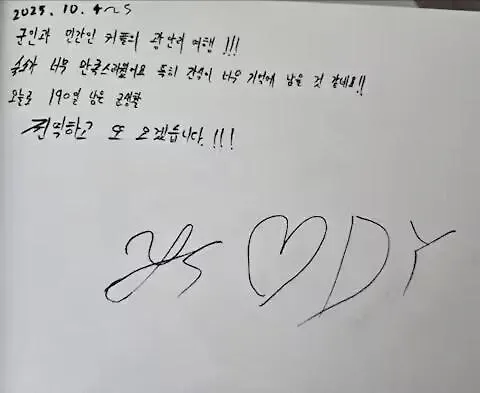 2025. 10. 4~5
군인과 민간인 커플의 광안리 여행 !!!
숙소가 너무 만족스러웠어요 특히 간식이 너무 기억에 남을 것 같네요!!
오늘로 190일 남은 군생활
전역하고 또 오겠습니다.!!!
YS ♡ DY